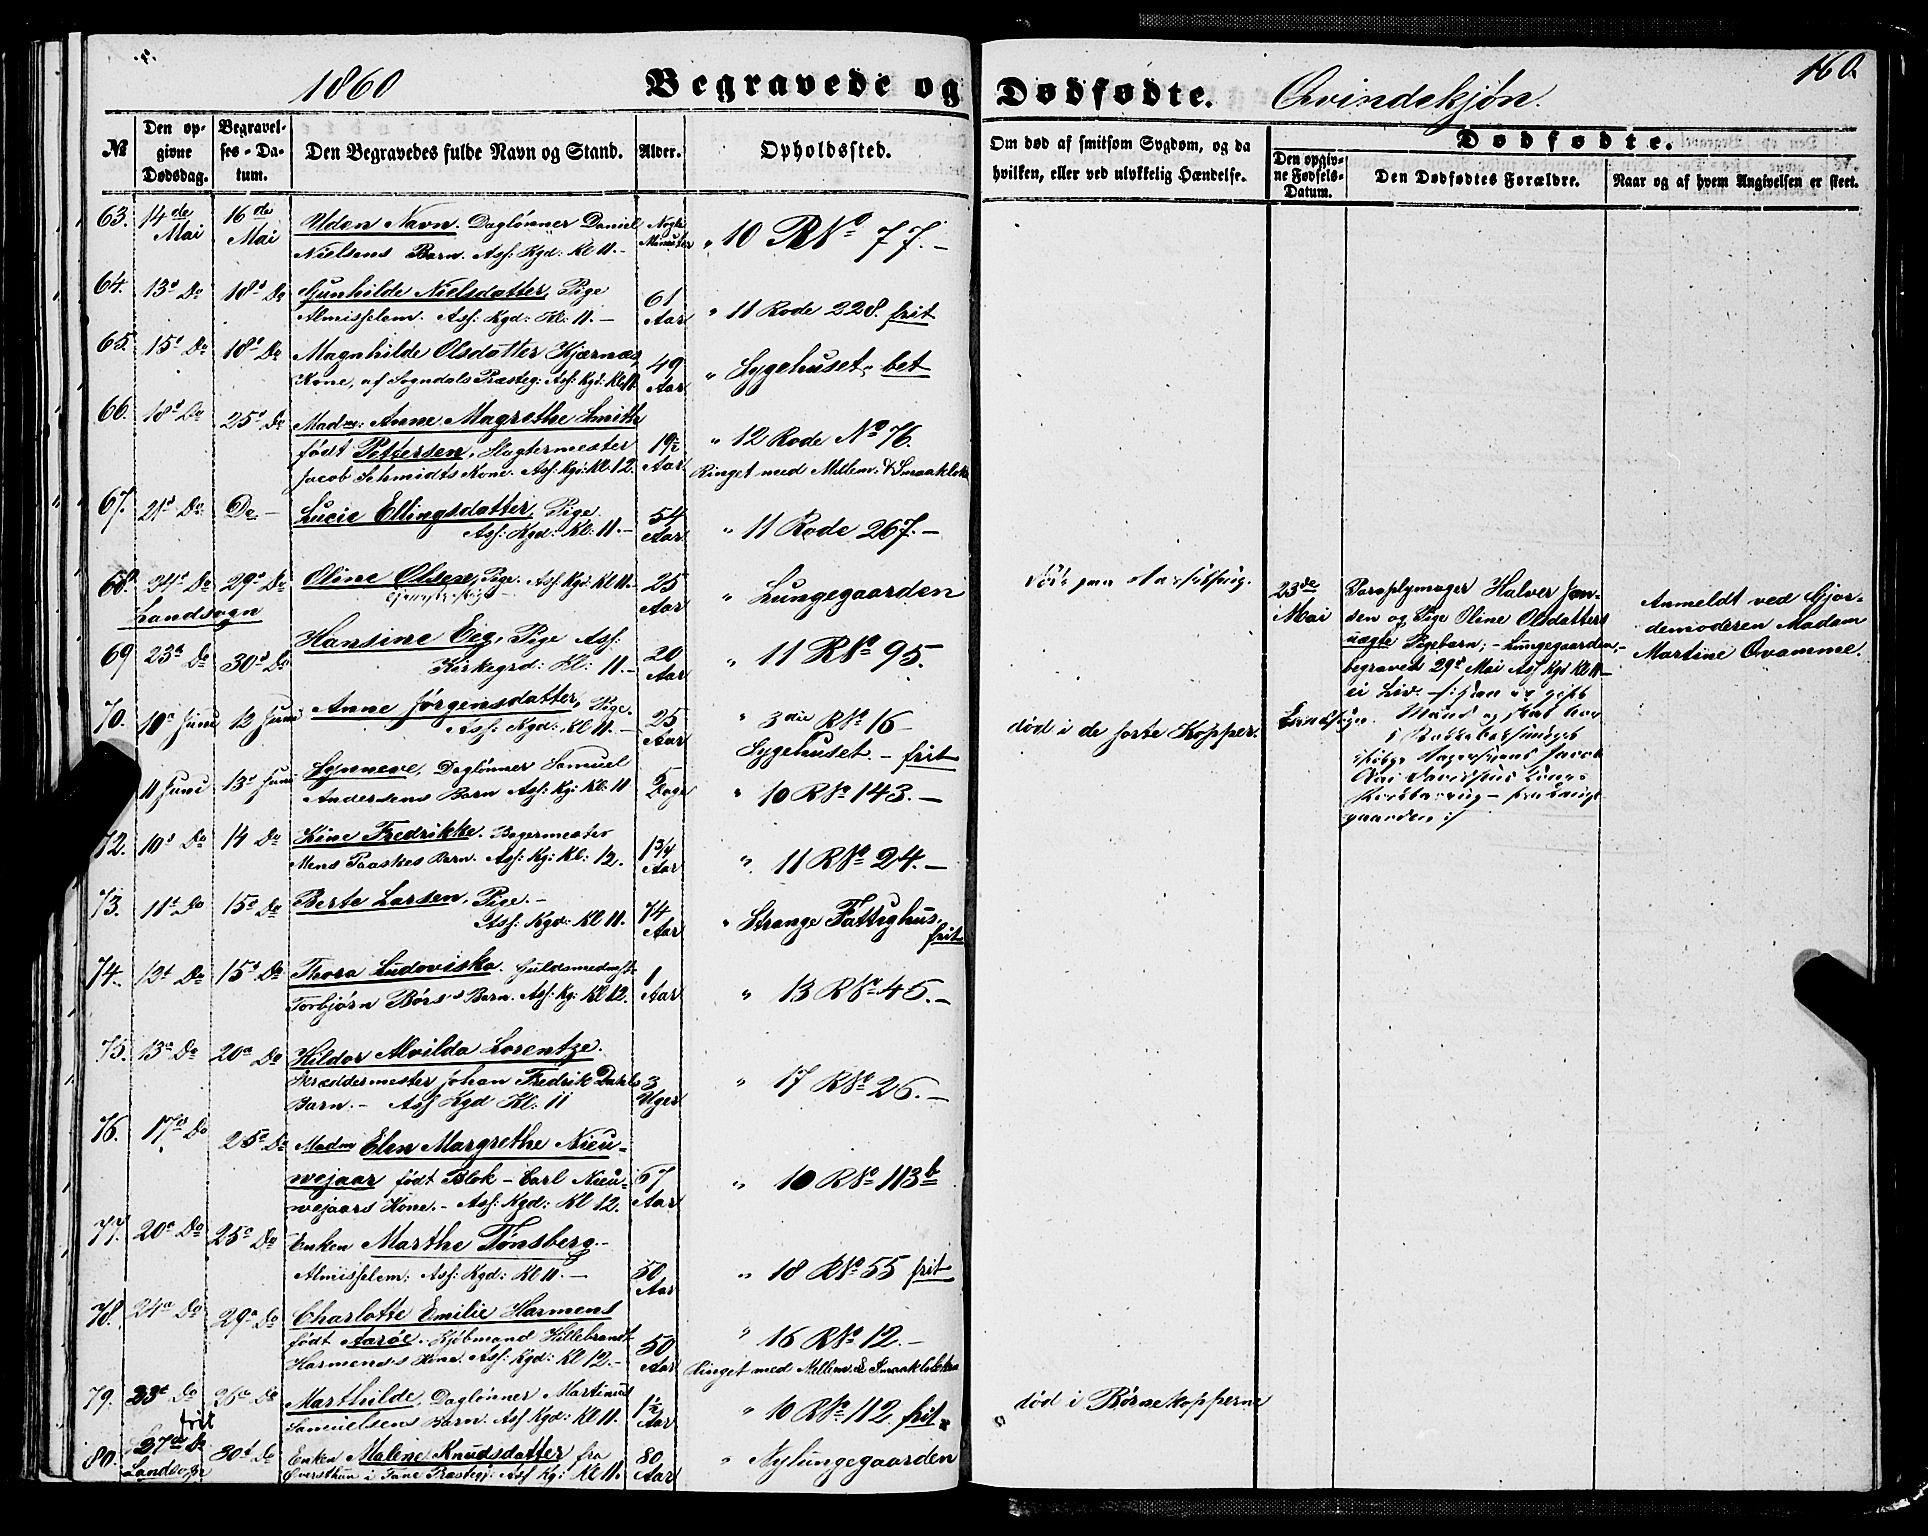 1860
Begravede og
Dødfødte.
Qvindekjøn.
160.
№
Den opgivne Dødsdag.
Begravelses-Datum.
Den Begravedes fulde Navn og Stand.
Alder.
Opholdssted.
Om død af smitsom Sygdom, og da hvilken, eller ved ulykkelig Hændelse.
Dødfødte.
Den opgivne Fødsels-Datum.
Den Dødfødtes Forældre.
Naar og af hvem Angivelsen er skeet.
63. 14de Mai 16de Mai Uden Navn. Daglønner Daniel
Nielsens Barn. Ass: Kgd: Kl 11.- Nogle Minuter " 10 R No 77.-
64. 13d Do 18d Do Gunhilde Nielsdatter, Pige
Almisselem. Ass: Kgd: Kl: 11.- 61 Aar " 11 Rode 228. frit
65. 15d Do 18d Do Magnhilde Olsdatter Kjærnæs,
Kone, af Sogndals Præsteg: Ass: Kgd: Kl 11. 49 Aar " Sygehuset, bet
66. 18d Do 25d Do Madm: Anne Magrethe Smith
født Pettersen, Slagtermester
Jacob Schmidts Kone. Ass: Kg: Kl: 12. 19½ Aar " 12 Rode No 76.
Ringet med Mellem & Smaaklok
67. 21d Do Do - Lucie Ellingsdatter, Pige
Ass: Kgd: Kl: 11.- 54 Aar " 11 Rode 267.-
68. 24d Do 29d Do Oline Olsen, Pige. Ass: Kgd: Kl 11.- 25 Aar " Lungegaarden
Landsogn
død paa Barselseng.
23de Mai
Paraplymager Halver Jansen og Pige Oline Olsdatters
uægte Pigebarn, - Lungegaarden,-
begravet 29d Mai Ass Kgd Kl 11-
Landsogn.
Anmeldt ved Gjordemoderen Madam
Martine Qvamme.
69 23d Do 30d Do Hansine Eeg, Pige Ass:
Kirkegrd: Kl: 11.- 20 Aar " 11 R No 95.
70. 10d Juni 12 Juni Anne Jørgensdatter, Pige.
Ass: Kgd: Kl 11.- 25 Aar " 3die R No 16
Sygehuset. - frit
død i de sorte Kopper.
11 Juni 13d Juni Synneve, Daglønner Samuel
Andersens Barn Ass: Kg: Kl: 11 5 Dage " 10 R No 143.-
72. 10d Do 14 Do Line Fredrikke. Bagermester
Mens Paaskes Barn. Ass: Kg: Kl: 12. 1¾ Aar " 11 R No 24.-
73. 11d Do 15d Do Berte Larsen, Pige.-
Ass: Kgd: Kl 11. 74 Aar " Strange Fattighus. frit
74. 12d Do 15d Do Thora Ludoviska. Guldsmedmstr
Torbjørn Børs's Barn. Ass: Kg: Kl 12. 1 Aar " 13 R No 45.-
75. 13d Do 20d Do Hildor Alvilda Lorentze.
Skræddermester Johan Fredrik Dahls
Barn.- Ass Kgd Kl. 11 3 Uger " 17 R No 26.-
76. 17d Do 25d Do Madm Elen Margrethe Nieu-
wejaar født Blok - Carl Nieu-
wejaars Kone.- Ass: Kgd: Kl 12. 67 Aar " 10 R No 113b
77. 20d Do 25d Do Enken Marthe Tønsberg.-
Almisselem: Ass: Kgd: Kl 11.- 50 Aar " 18 R No 55 frit
78. 24d Do 29d Do Charlotte Emilie Harmens
født Aarøe. Kjøbmand Hillebrandt
Harmens's Kone. Ass: Kgd: Kl 12.- 50 Aar " 16 R No 12.-
Ringet med Mellem & Smaaklokke
79. 23d Do 26d Do Marthilde, Daglønner Martinus
Samuelsens Barn. Ass Kgd: Kl 11. 1½ Aar " 10 R No 112 frit
død i Børnekopperne
80. 27d Do 30d Do Enken Malene Knudsdatter fra
i Fane Præsteg: Ass Kg: Kl 11. 80 Aar " Nylungegaarden
frit
Landsogn